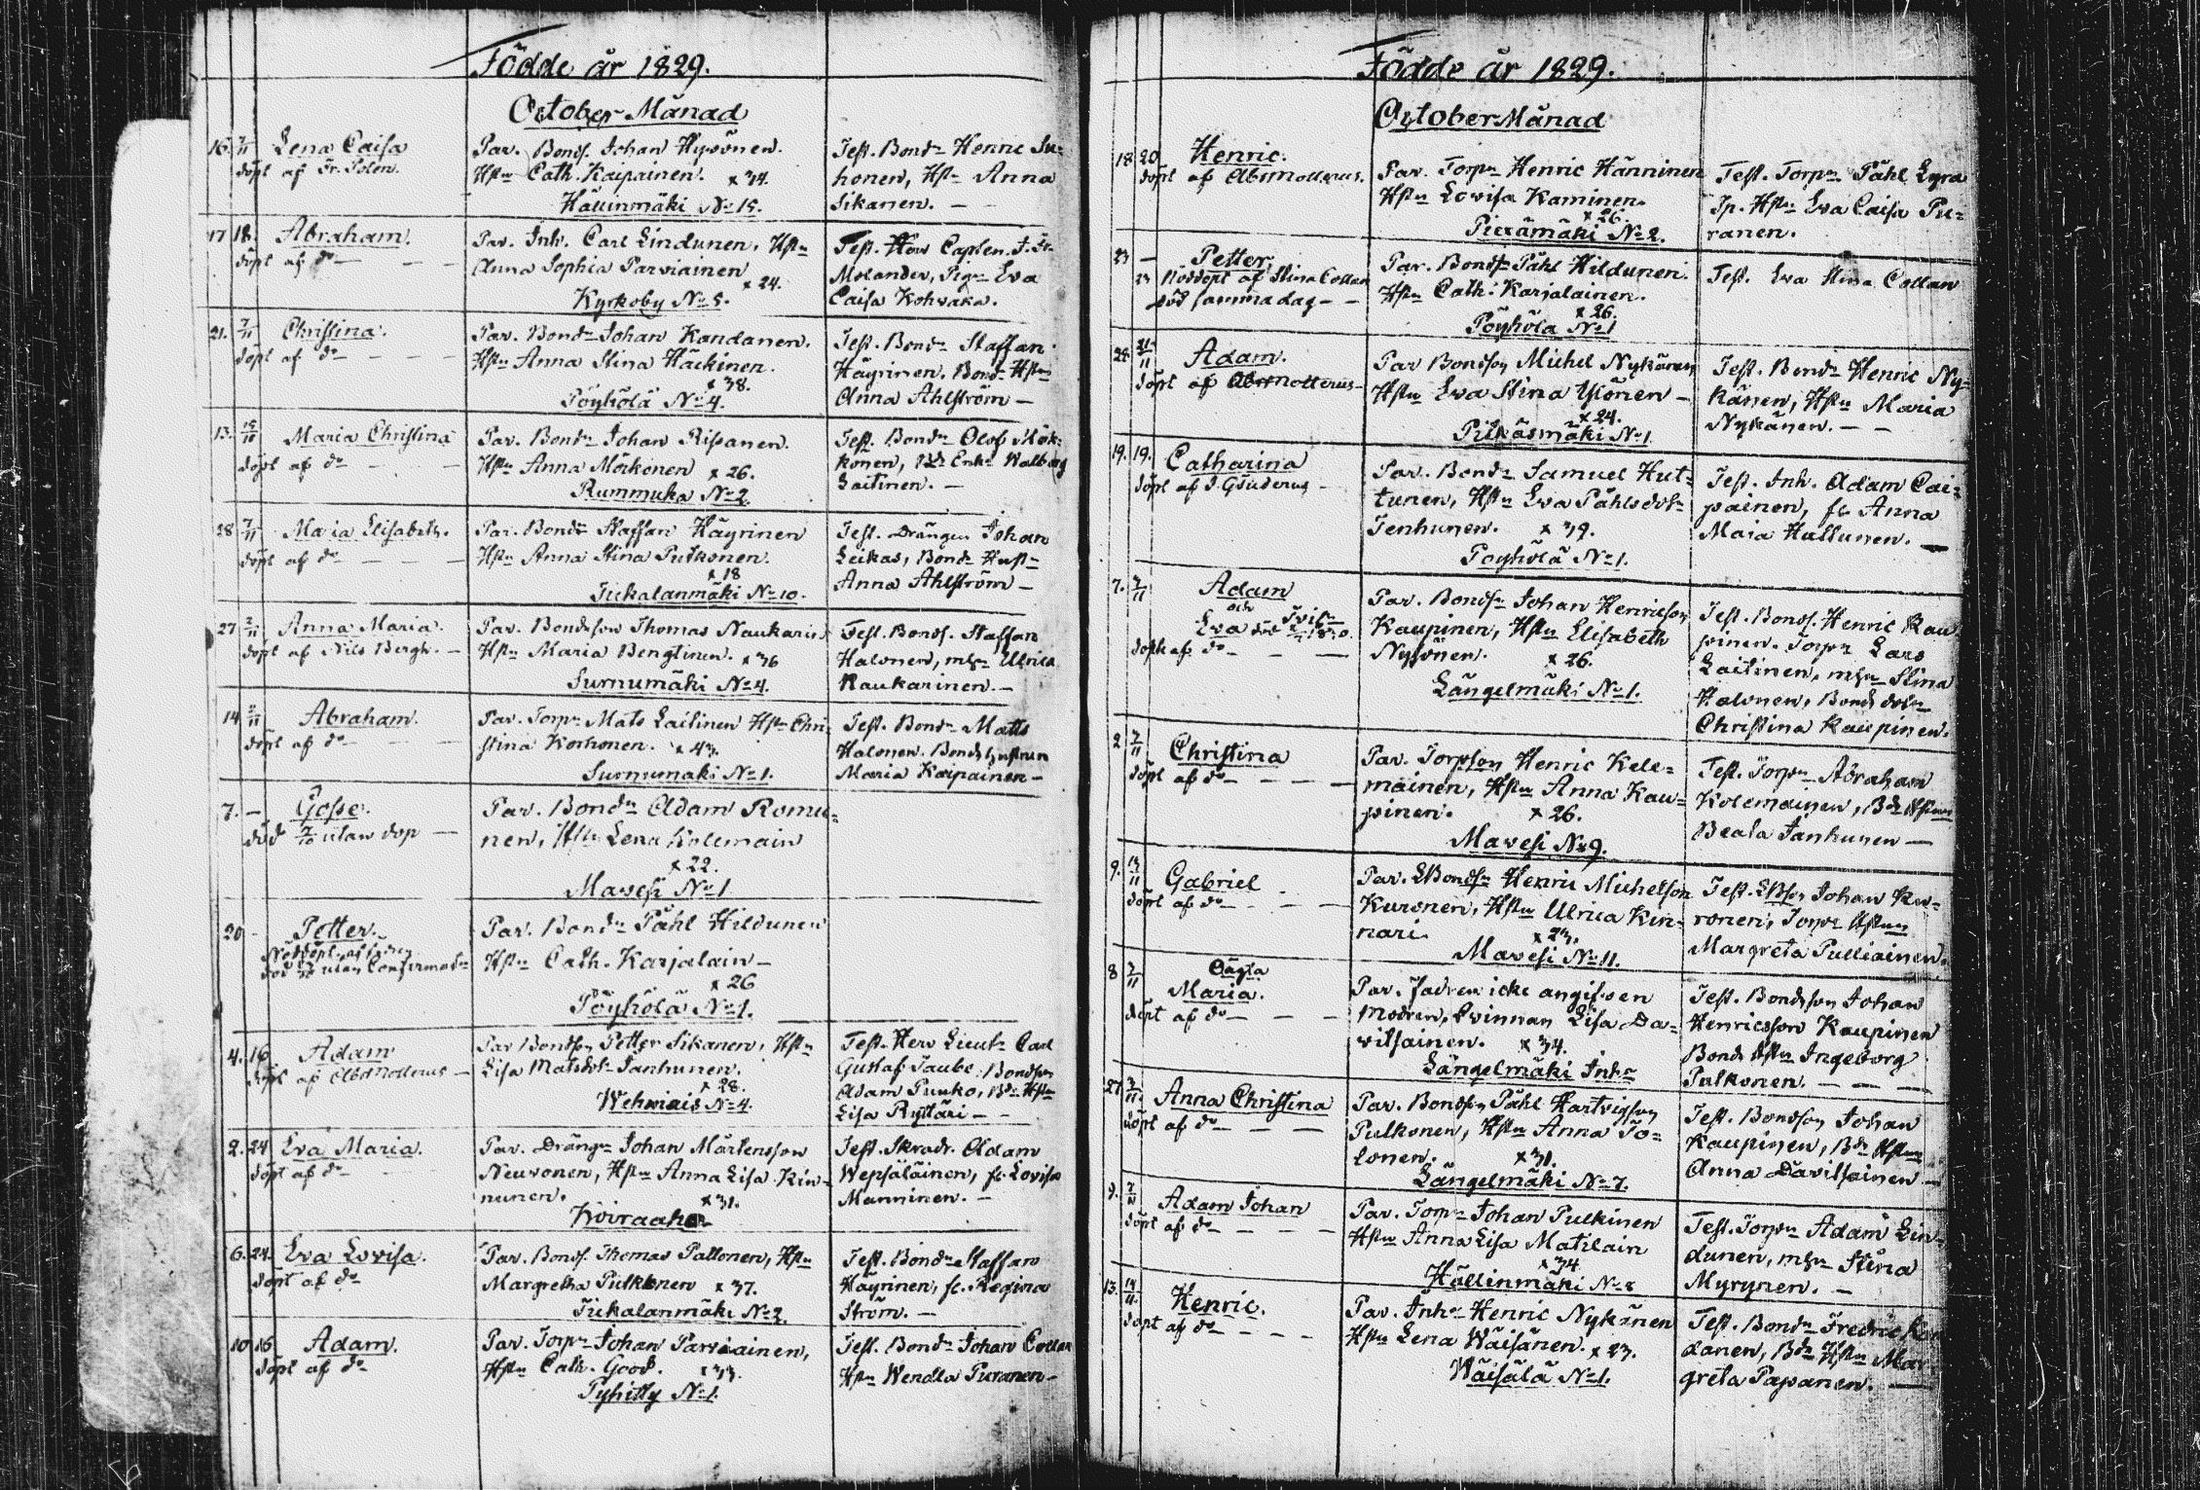 Födde år 1829.
October Månad
16. 7/11 Lena Caisa
döpt af Fr. Polén.
Par. Bond. Johan Hyvönen.
Hstu Cath. Kaipainen. x 34.
Hällinmäki No 15.
Test. Bondn Henric Ju-
honen, Hst. Anna
Sikanen. —
17 18. Abraham.
döpt af do — — —
Par. Inh. Carl Lindunen, Hstu
Anna Sophia Parviainen
x 24.
Kyrkoby No 5.
Test. Herr Capten. J. Fr.
Molander, Pign Eva
Caisa Kohvaka.
21. 7/11 Christina.
döpt af do — — — —
Par. Bondn Johan Kandanen.
Hstu Anna Stina Häckinen.
x 38.
Pöyhölä No 4.
Test. Bondn Staffan
Häyrinen. Bond Hstu
Anna Ahlström —
13. 15/10 Maria Christina
döpt af do — —
Par. Bondn Johan Risanen.
Hstu Anna Mörkönen x 26.
Rummuka No 2
Test. Bondn Olof Mök-
könen, Bd Enk. Walborg
Laitinen. —
28 7/11 Maria Elisabeth.
döpt af do — — — —
Par. Bondn Staffan Häyrinen
Hstu Anna Stina Pulkonen.
x 18
Tickalanmäki No 10.
Test. Drängen Johan
Leikas, Bond Hust
Anna Ahlström —
27 2/11 Anna Maria.
döpt af Nils Bergh. —
Par. Bondeson Thomas Naukarin
Hstu Maria Bengtinen. x 36
Surnumäki No 4.
Test. Bond. Staffan
Halonen, mhn Ulrica
Raukarinen. —
14 2/11 Abraham.
döpt af do — — —
Par. Torpn Mats Laitinen Hstu Chri-
stina Korhonen. x 43.
Surnumäki No 1.
Test. Bondn Matts
Halonen. Bonds hustrun
Maria Kaipainen —
7. — Gosse.
död 7/10 utan dop —
Par. Bondn Adam Romu-
nen, Hstu Lena Kolemain
x 22.
Mavesi No 1
20 - Petter.
Par. Bondn Påhl Hildunen
Hstu Cath. Karjalain —
x 26
Pöyhölä No 1.
4. 16 Adam
döpt af AbrMollerus —
Par Bondson Petter Sikanen, Hstu
Lisa Matsdt Janhunen.
x 28.
Wehmais No 4.
Test. Herr Lieutn Carl
Gustaf Taube; Bondson
Adam Puuko, Bdn Hstu
Lisa Ryttäri — —
2. 24 Eva Maria.
döpt af do — —
Par. Drängn Johan Mårtensson
Neuvonen, Hstu Anna Lisa Kin-
nunen. x 31.
Test. Skradr. Adam
Wepsäläinen, fr Lovisa
Manninen. —
6. 24. Eva Lovisa.
döpt af do
Par. Bond. Thomas Paltonen, Hstu
Margretha Pulkonen x 37.
Tickalanmäki No 2.
Test. Bondn Staffan
Häyrinen, fr. Regina
Ström. —
10 16 Adam.
döpt af do
Par. Torpn Johan Parviainen,
Hstu Cath. Good. x 33.
Pyhitty No 1.
Test. Bondn Johan Collan
Hstu Wendla Puranen —
Födde år 1829.
October Månad
18 20 Henric.
döpt af AbrMollerus.
Par. Torpn Henric Hänninen
Hstu Lovisa Kaminen.
x 26.
Piexämäki No 2.
Test. Torpn Påhl Lyra
Tp. Hstu Eva Caisa Pu-
ranen.
23 — Petter.
23 Nöddöpt af Stina Collan
död samma dag — —
Par. Bond Påhl Hildunen
Hstu Cath. Karjalainen.
x 26.
Pöyhölä No 1
Test. Eva Stina Collan
24. 21/11 Adam.
döpt af AbrMollerus —
Par Bondson Michel Nykänen
Hstu Eva Stina Ylönen —
x 24.
Pitkäsmäki No 1
Test. Bondn Henric Ny-
känen, Hstu Maria
Nykänen. — —
19. 19. Catharina
döpt af J. Giuderus —
Par. Bondn Samuel Hut-
tunen, Hstu Eva Påhlsdotr
Tenhunen. x 39.
Pöyhölä No 1.
Test. Inh. Adam Cai-
painen, fr Anna
Maja Hallunen. —
7. 7/11 Adam
och
Eva
döpt af do — — —
Par. Bondsn Johan Henricsson
Kaupinen, Hstu Elisabeth
Nyssönen. x 26.
Längelmäki No 1.
Test. Bond. Henric Kau
pinen. Torpr Lars
Laitinen, mhn Stina
Halonen, Bonds dotn
Christina Kaupinen.
2 7/11 Christina
döpt af do — — —
Par. Torpson Henric Kole-
mainen, Hstu Anna Kau-
pinen. x 26.
Mavesi No 9.
Test. Torpn Abraham
Kolemainen, Bdn Hstun
Beata Janhunen —
9. 14/11 Gabriel
döpt af do — — —
Par. LBondsn Henric Michelson
Kuronen, Hstu Ulrica Kin-
nari x 23.
Mavesi No 11.
Test. LBson Johan Ku-
ronen, Torpr Hstun
Margreta Pulliainen.
8 7/11 Oägta
Maria.
döpt af do — — —
Par. Fadren icke angifven
Modren, Qvinnan Lisa Da-
vitsainen. x 34.
Längelmäki Inhr
Test. Bondsson Johan
Henricsson Kaupinen
Bonds Hstu Ingeborg
Pulkonen. — — —
27. 7/11. Anna Christina
döpt af do — — —
Par. Bondson Påhl Hartvigson
Pulkonen, Hstu Anna To-
lonen. x 31.
Längelmäki No 7.
Test. Bondson Johan
Kaupinen, Bdn Hstun
Anna Davitsainen —
9. 7/11 Adam Johan
döpt af do — — —
Par. Torpn Johan Pulkinen
Hstu Anna Lisa Matilain
x 34
Hällinmäki No 8
Test. Torpn Adam Lin-
dunen, mhn Stina
Myrynen. —
13. 14/11. Henric.
döpt af do — — —
Par. Inhr Henric Nykänen
Hstu Lena Wäisänen. x 23.
Wäisälä No 1.
Test. Bondn Fredric Kon
danen, Bdn Hstu Mar-
greta Papanen. —